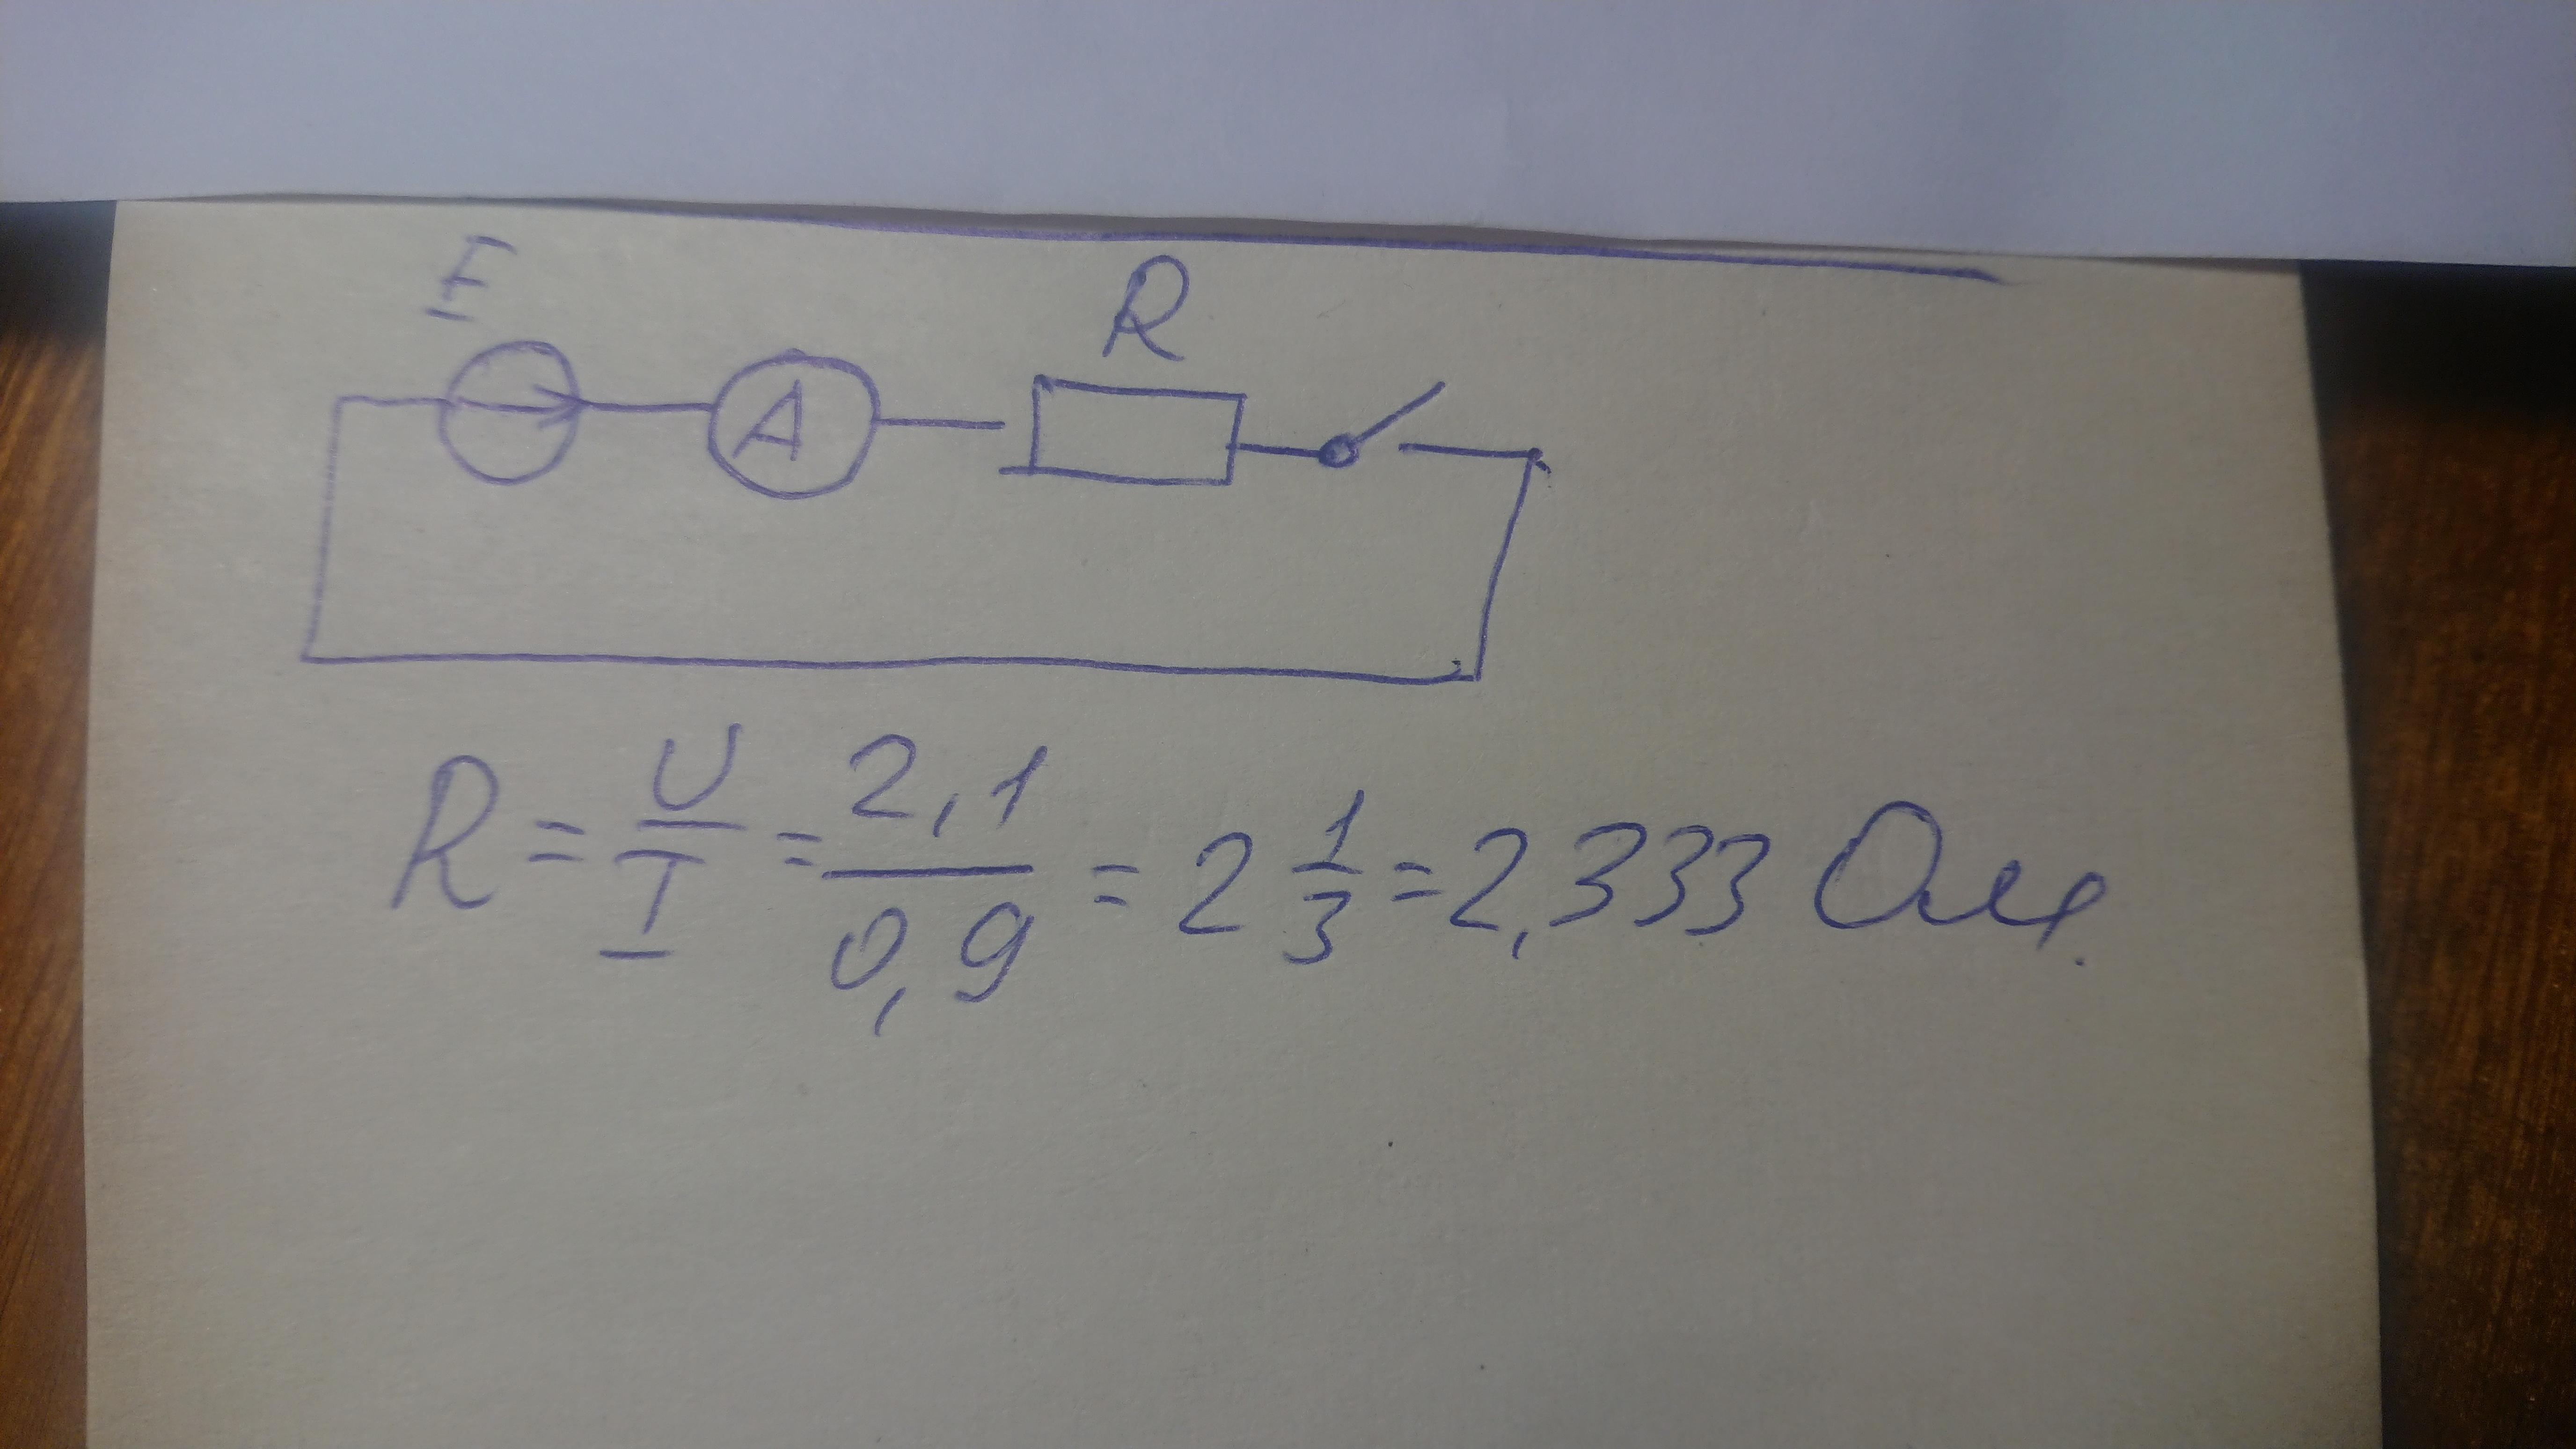 E
R
A
R = U/I = 2,1/0,9 = 2 1/3 = 2,333 Ом.